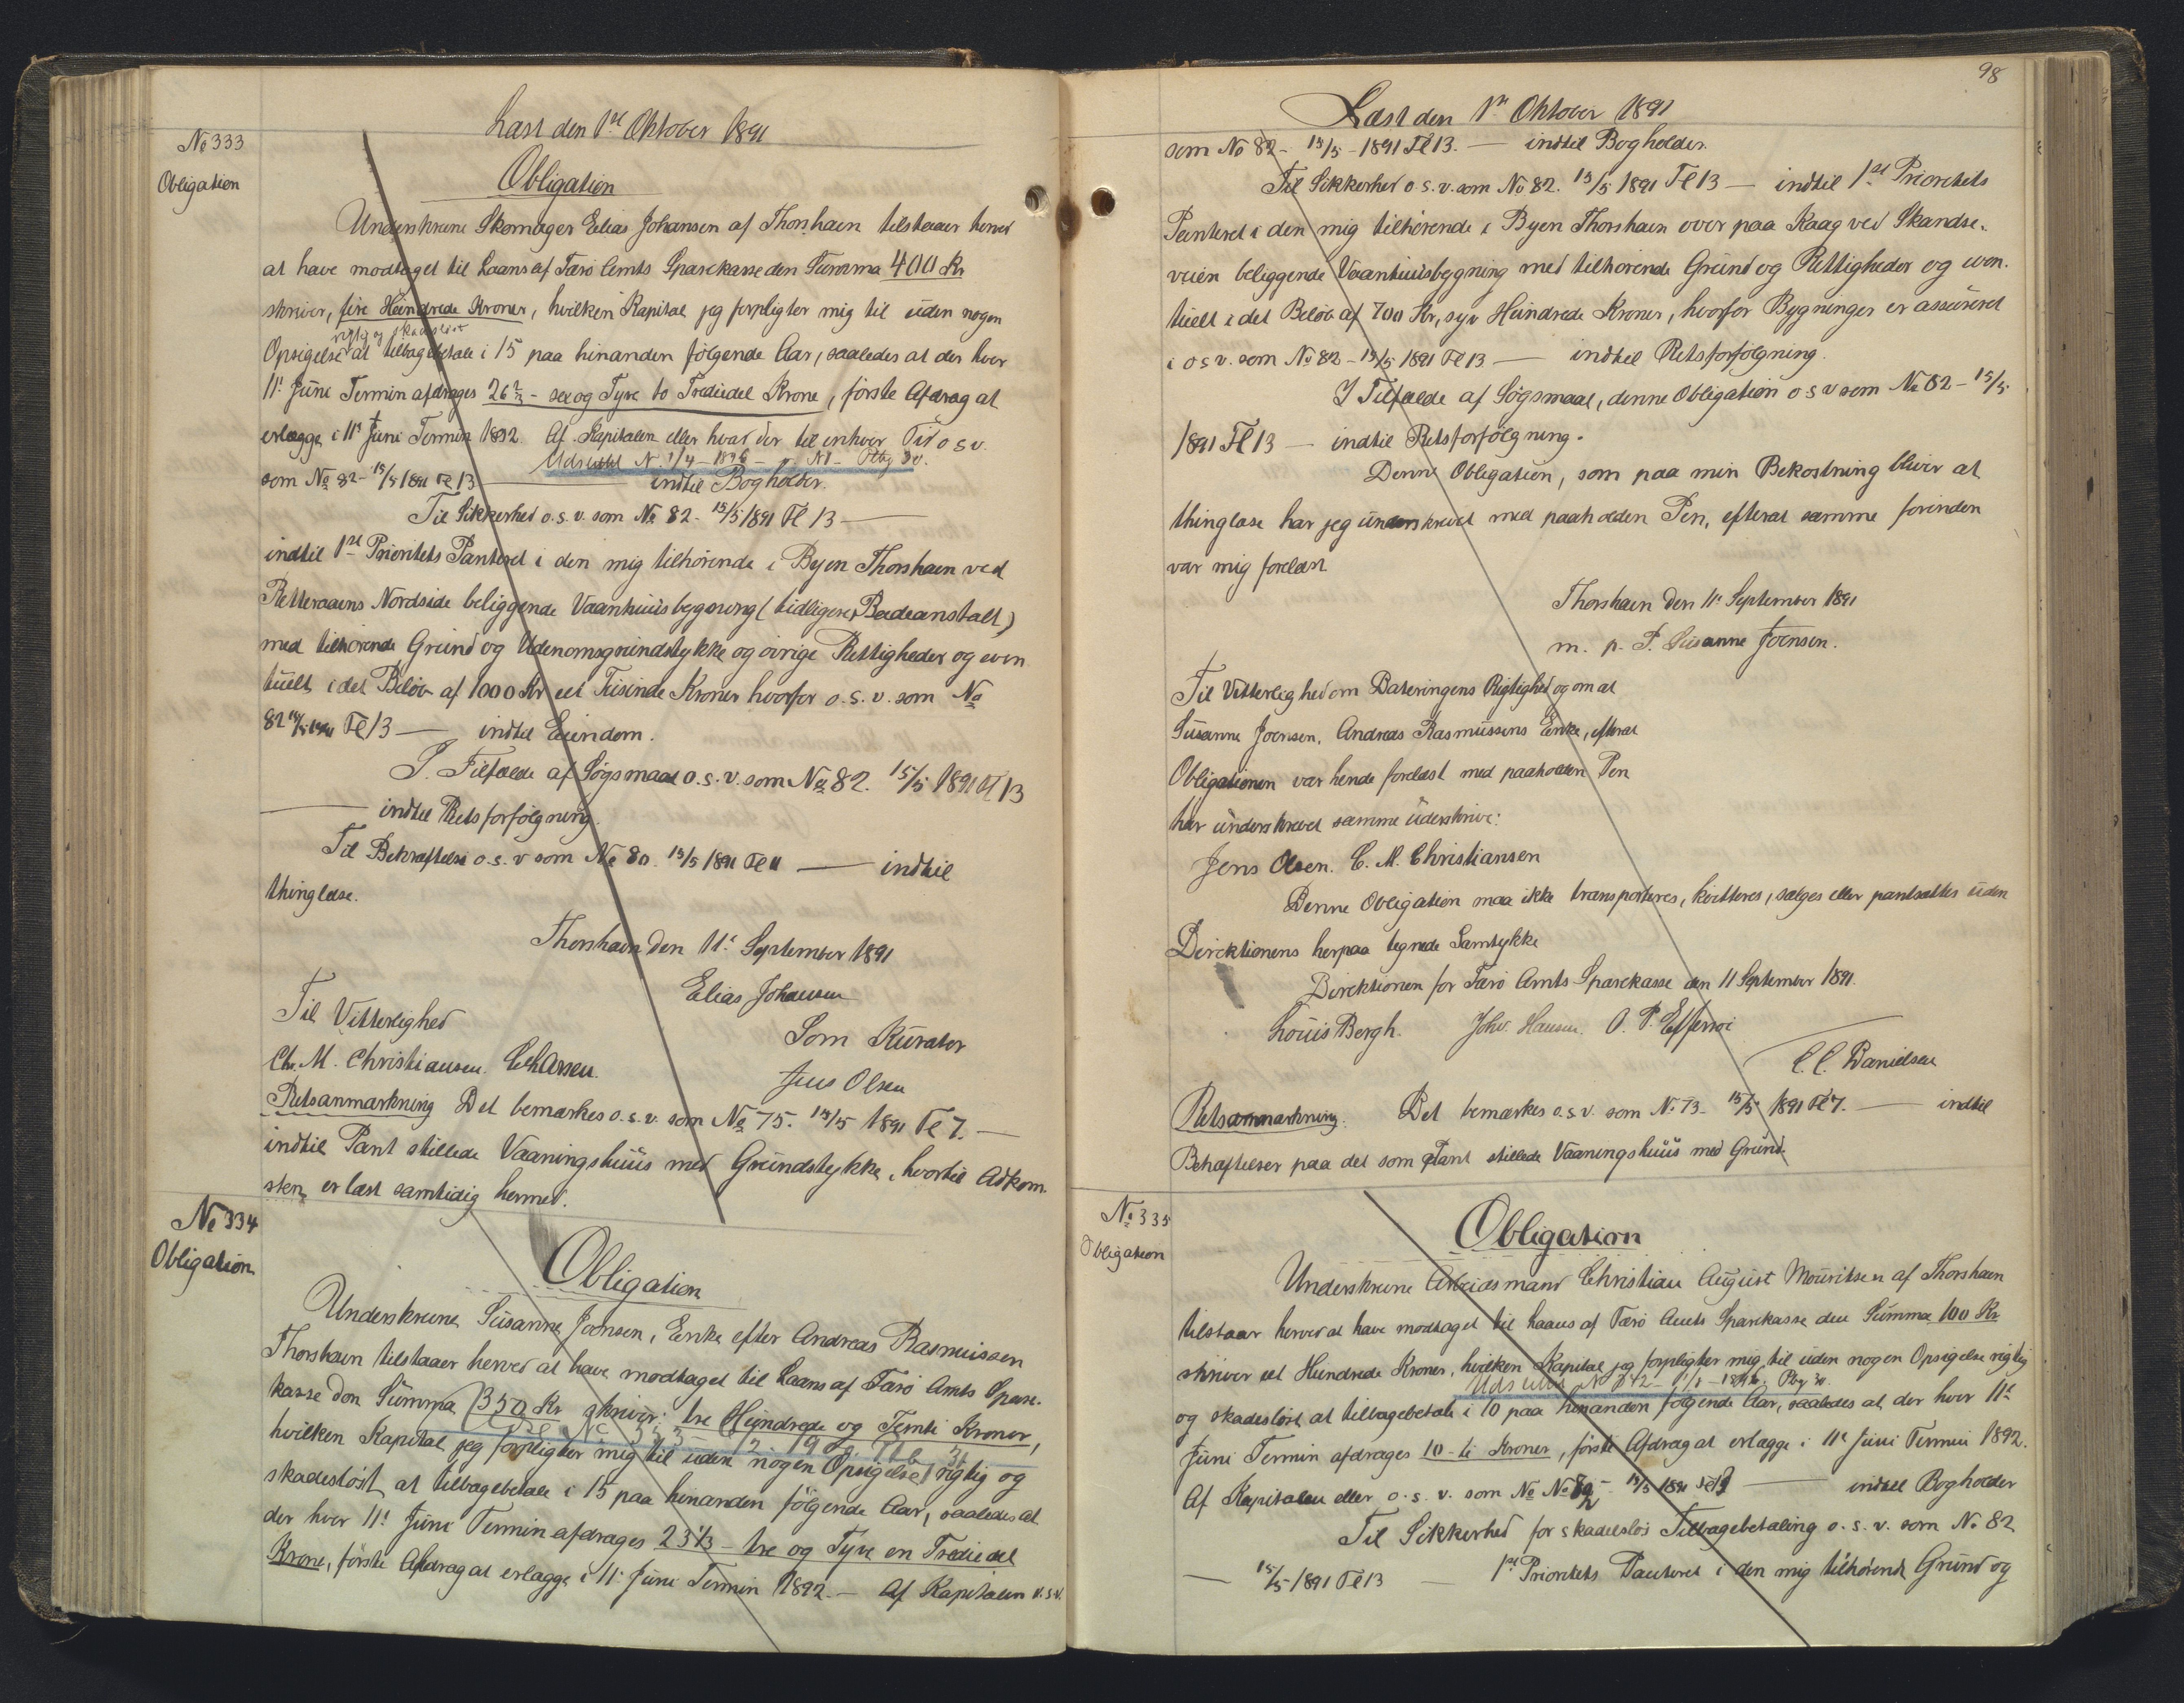 Læst den 1ste Oktober 1891
No 333
Obligation
Obligation
Underskrevne Skomager Elias Johansen af Thorshavn tilstaaer herved
at have modtaget til Laans af Færø Amts Sparekasse den Summa 400 Kr
skriver, fire Hundrede Kroner, hvilken Kapital jeg forpligter mig til uden nogen
rigtig og skadesløst
Opsigelse at tilbagebetale i 15 paa hinanden følgende Aar, saaledes at der hver
11' Juni Termin afdrages 26 2/3 - sex og Tyve to Trediedel Krone, første Afdrag at
erlægge i 11' Juni Termin 1892. Af Kapitalen eller hvad der til enhver Tid o s v.
Udslettet N. 1/4 - 1896 - Nl -
som No 82 - 15/5 1891 Fl 13 — indtil Bogholder.
Til Sikkerhed o. s. v. som No 82. 15/5 1891 Fl 13 —
indtil 1ste Prioritets Panteret i den mig tilhørende i Byen Thorshavn ved
Retteraaens Nordside beliggende Vaanhuusbygning (tidligere Badeanstalt)
med tilhørende Grund og Udenomsgrundstykke og øvrige Rettigheder og even
tuelt i det Beløb af 1000 Kr eet Tusinde Kroner hvorfor o. s. v. som No
82 15/5 1891 Fl 13 — indtil Eiendom.
I Tilfælde af Søgsmaal o. s. v. som No 82. 15/5 1891 Fl 13
— indtil Retsforfølgning.
Til Bekræftelse o. s. v som No 80. 15/5 1891 Fl 11 — indtil
thinglæse.
Thorshavn den 11' September 1891
Elias Johansen
Til Vitterlighed
Som Kurator
Chr. M. Christiansen.
Jens Olsen
Retsanmærkning Det bemærkes o. s. v. som No 75. 15/5 1891 Fl 7. —
indtil Pant stillede Vaaningshuus med Grundstykke, hvortil Adkom-
sten er læst samtidig hermed.
No 334
Obligation
Obligation
Underskrevne Susanne Joensen, Enke efter Andreas Rasmussen
Thorshavn tilstaaer herved at have modtaget til Laans af Færø Amts Spare-
kasse den Summa 350 Kr skriver: tre Hundrede og Femti Kroner,
hvilken Kapital jeg forpligter mig til uden nogen Opsigelse rigtig og
skadesløst at tilbagebetale i 15 paa hinanden følgende Aar, saaledes at
der hver 11' Juni Termin afdrages 23 1/3 - tre og Tyve en Trediedel
Krone, første Afdrag at erlægge i 11' Juni Termin 1892. — Af Kapitalen o. s. v.
98
Læst den 1ste Oktober 1891
som No 82 - 15/5 - 1891 Fl 13. — indtil Bogholder.
Til Sikkerhed o. s. v. som No 82. 15/5 1891 Fl 13 — indtil 1ste Prioritets
Panteret i den mig tilhørende i Byen Thorshavn over paa Kaag ved Skandse-
veien beliggende Vaanhuusbygning med tilhørende Grund og Rettigheder og even-
tuelt i det Beløb af 700 Kr, syv Hundrede Kroner, hvorfor Bygninger er assureret
i o s v. som No 82 - 15/5 1891 Fl 13 — indtil Retsforfølgning.
I Tilfælde af Søgsmaal, denne Obligation o s v som No 82 - 15/5
1891 Fl 13 — indtil Retsforfølgning.
Denne Obligation, som paa min Bekostning bliver at
thinglæse har jeg underskrevet med paaholden Pen, efterat samme forinden
var mig forelæst
Thorshavn den 11' September 1891
m. p. P. Susanne Joensen.
Til Vitterlighed om Dateringens Rigtighed og om at
Susanne Joensen, Andreas Rasmussens Enke, efterat
Obligationen var hende forelæst med paaholden Pen
har underskrevet samme uderskrive:
Jens Olsen. C. M. Christiansen
Denne Obligation maa ikke transporteres, kvitteres, sælges eller pantsættes uden
Direktionens herpaa tegnede Samtykke
Direktionen for Færø Amts Sparekasse den 11 September 1891.
Louis Bergh. Johs. Hansen. O. P. Effersøe
C. C. Danielsen
Retsanmærkning. Det bemærkes o. s. v. som No 73 - 15/5 1891 Fl 7. — indtil
Behæftelser paa det som Pant stillede Vaaningshuus med Grund.
No 335
Obligation
Obligation
Underskrevne Arbeidsmand Christian August Mouritsen af Thorshavn
tilstaar herved at have modtaget til Laans af Færø Amts Sparekasse den Summa 100 Kr
skriver eet Hundrede Kroner, hvilken Kapital jeg forpligter mig til uden nogen Opsigelse rigtig
og skadesløst at tilbagebetale i 10 paa hinanden følgende Aar, saaledes at der hver 11'
Juni Termin afdrages 10 - ti Kroner, første Afdrag at erlægge i 11' Juni Termin 1892.
Af Kapitalen eller o. s. v. som No No 82 - 15/5 1891 Fl 13 — indtil Bogholder
Til Sikkerhed for skadesløs Tilbagebetaling o. s. v. som No 82
— 15/5 1891 Fl 13 — 1ste Prioritets Panteret i den mig tilhørende Grund og